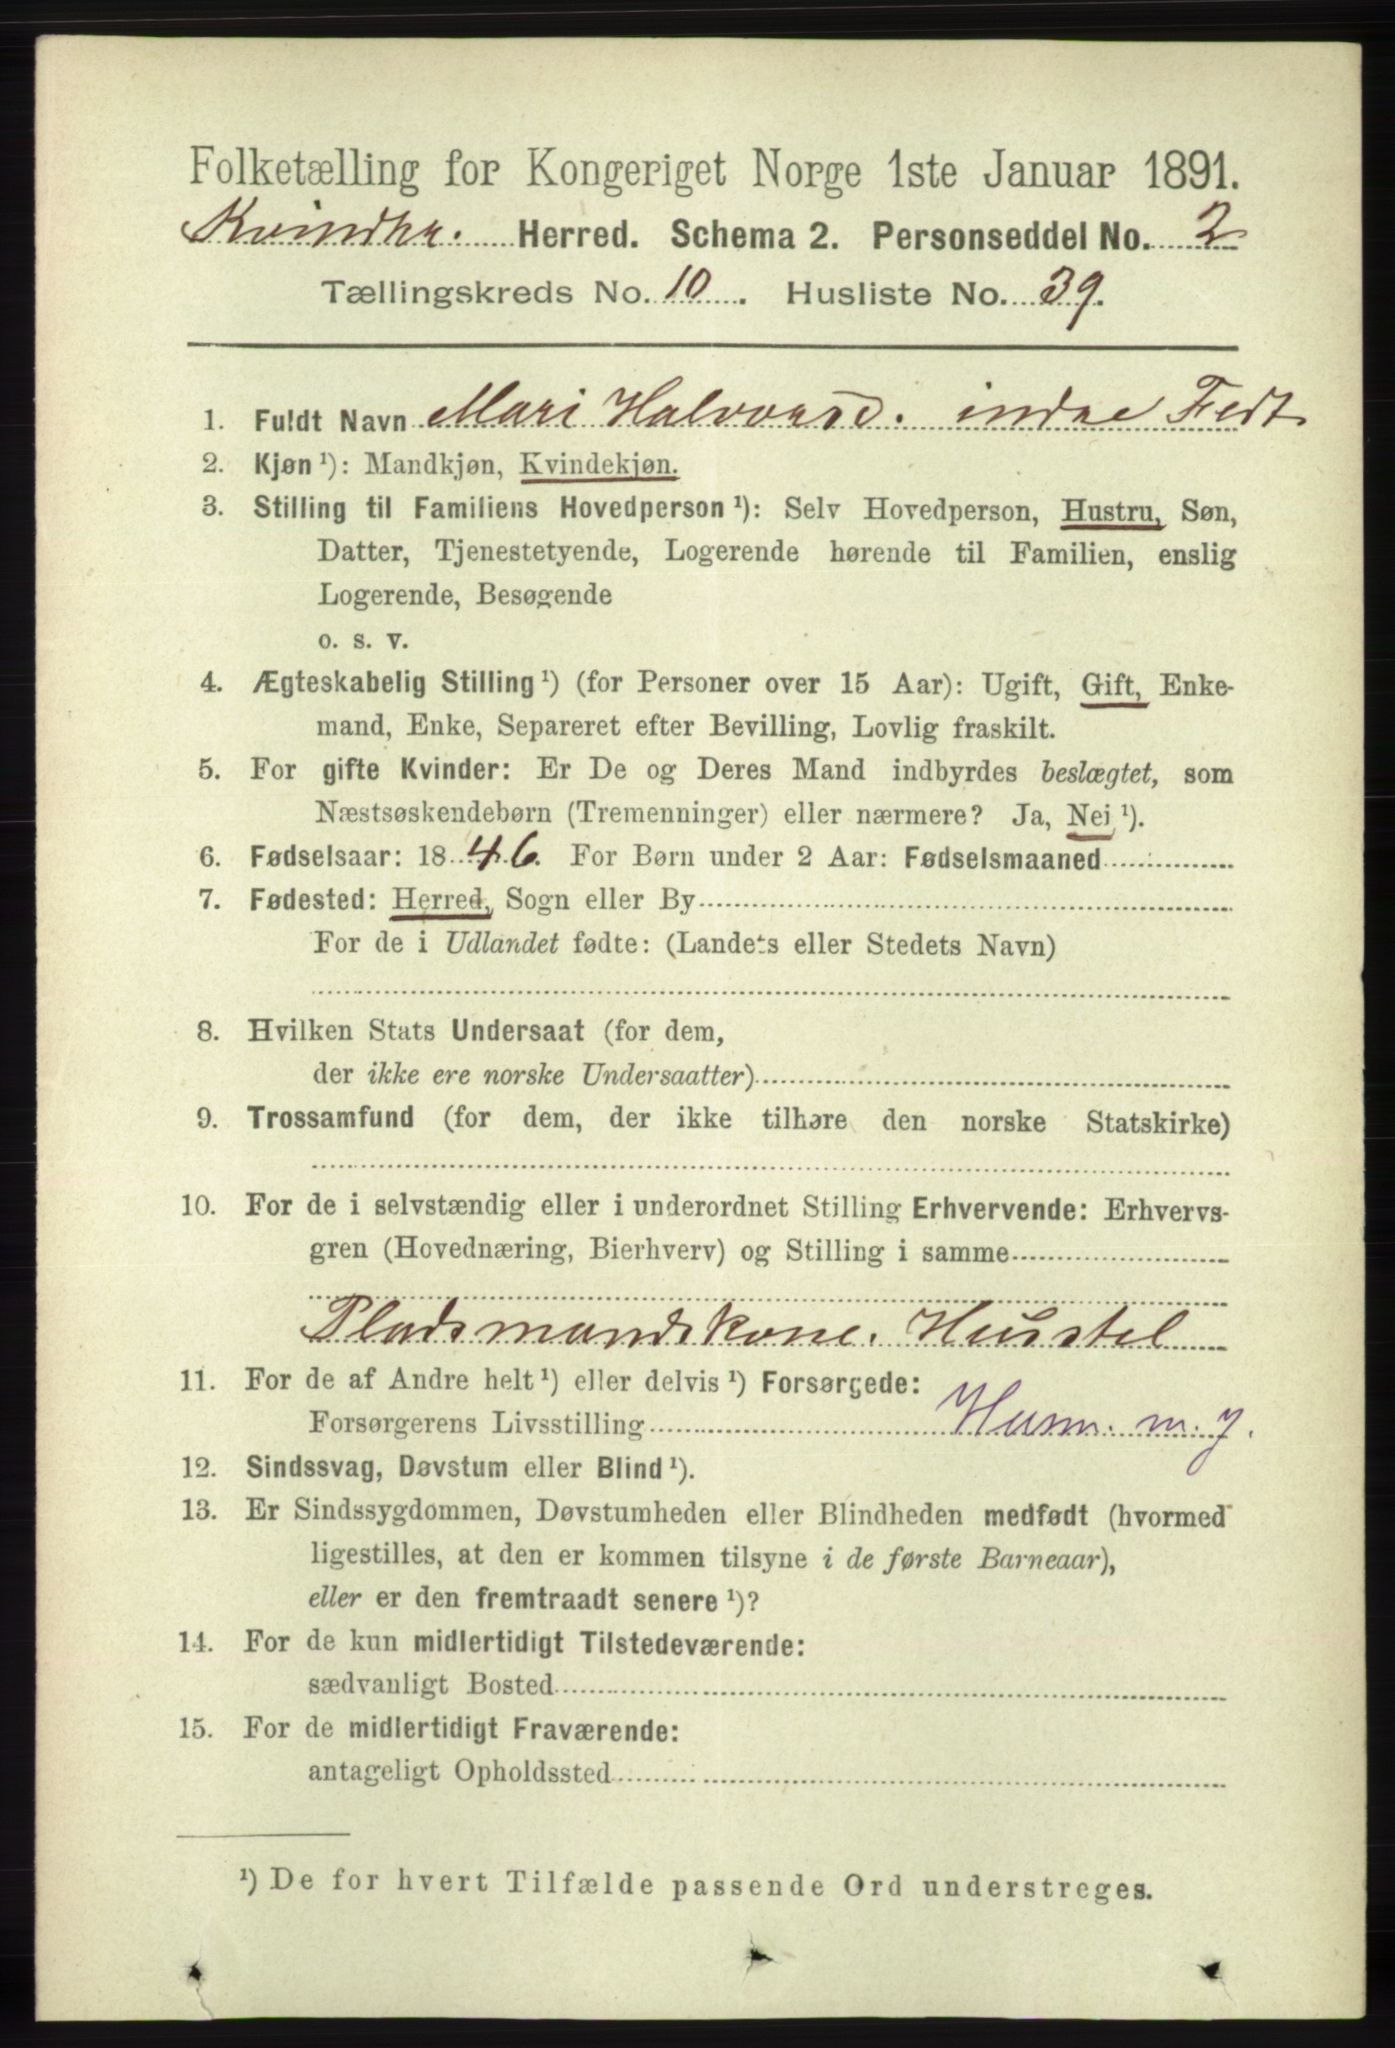 Folketælling for Kongeriget Norge 1ste Januar 1891.
Kvindher. Herred. Schema 2. Personseddel No. 2
Tællingskreds No. 10. Husliste No. 39.
1. Fuldt Navn Mari Halvorsd. indre Fedt
2. Kjøn ¹): Mandkjøn, Kvindekjøn.
3. Stilling til Familiens Hovedperson ¹): Selv Hovedperson, Hustru, Søn,
Datter, Tjenestetyende, Logerende hørende til Familien, enslig
Logerende, Besøgende
o. s. v.
4. Ægteskabelig Stilling ¹) (for Personer over 15 Aar): Ugift, Gift, Enke-
mand, Enke, Separeret efter Bevilling, Lovlig fraskilt.
5. For gifte Kvinder: Er De og Deres Mand indbyrdes beslægtet, som
Næstsøskendebørn (Tremenninger) eller nærmere? Ja, Nei ¹).
6. Fødselsaar: 1846. For Børn under 2 Aar: Fødselsmaaned
7. Fødested: Herred, Sogn eller By
For de i Udlandet fødte: (Landets eller Stedets Navn)
8. Hvilken Stats Undersaat (for dem,
der ikke ere norske Undersaatter)
9. Trossamfund (for dem, der ikke tilhøre den norske Statskirke)
10. For de i selvstændig eller i underordnet Stilling Erhvervende: Erhvervs-
gren (Hovednæring, Bierhverv) og Stilling i samme
Pladsmandskone. Husstel
11. For de af Andre helt ¹) eller delvis ¹) Forsørgede:
Forsørgerens Livsstilling Husm. m. j.
12. Sindssvag, Døvstum eller Blind ¹).
13. Er Sindssygdommen, Døvstumheden eller Blindheden medfødt (hvormed
ligestilles, at den er kommen tilsyne i de første Barneaar),
eller er den fremtraadt senere ¹)?
14. For de kun midlertidigt Tilstedeværende:
sædvanligt Bosted
15. For de midlertidigt Fraværende:
antageligt Opholdssted
¹) De for hvert Tilfælde passende Ord understreges.